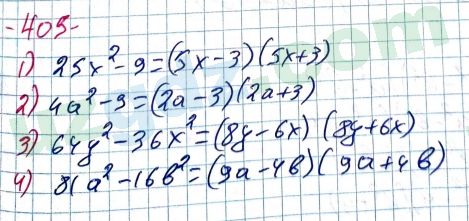 -405-
1) 25x² - 9 = (5x - 3)(5x + 3)
2) 4a² - 9 = (2a - 3)(2a + 3)
3) 64y² - 36x² = (8y - 6x) (8y + 6x)
4) 81a² - 16b² = (9a - 4b)(9a + 4b)